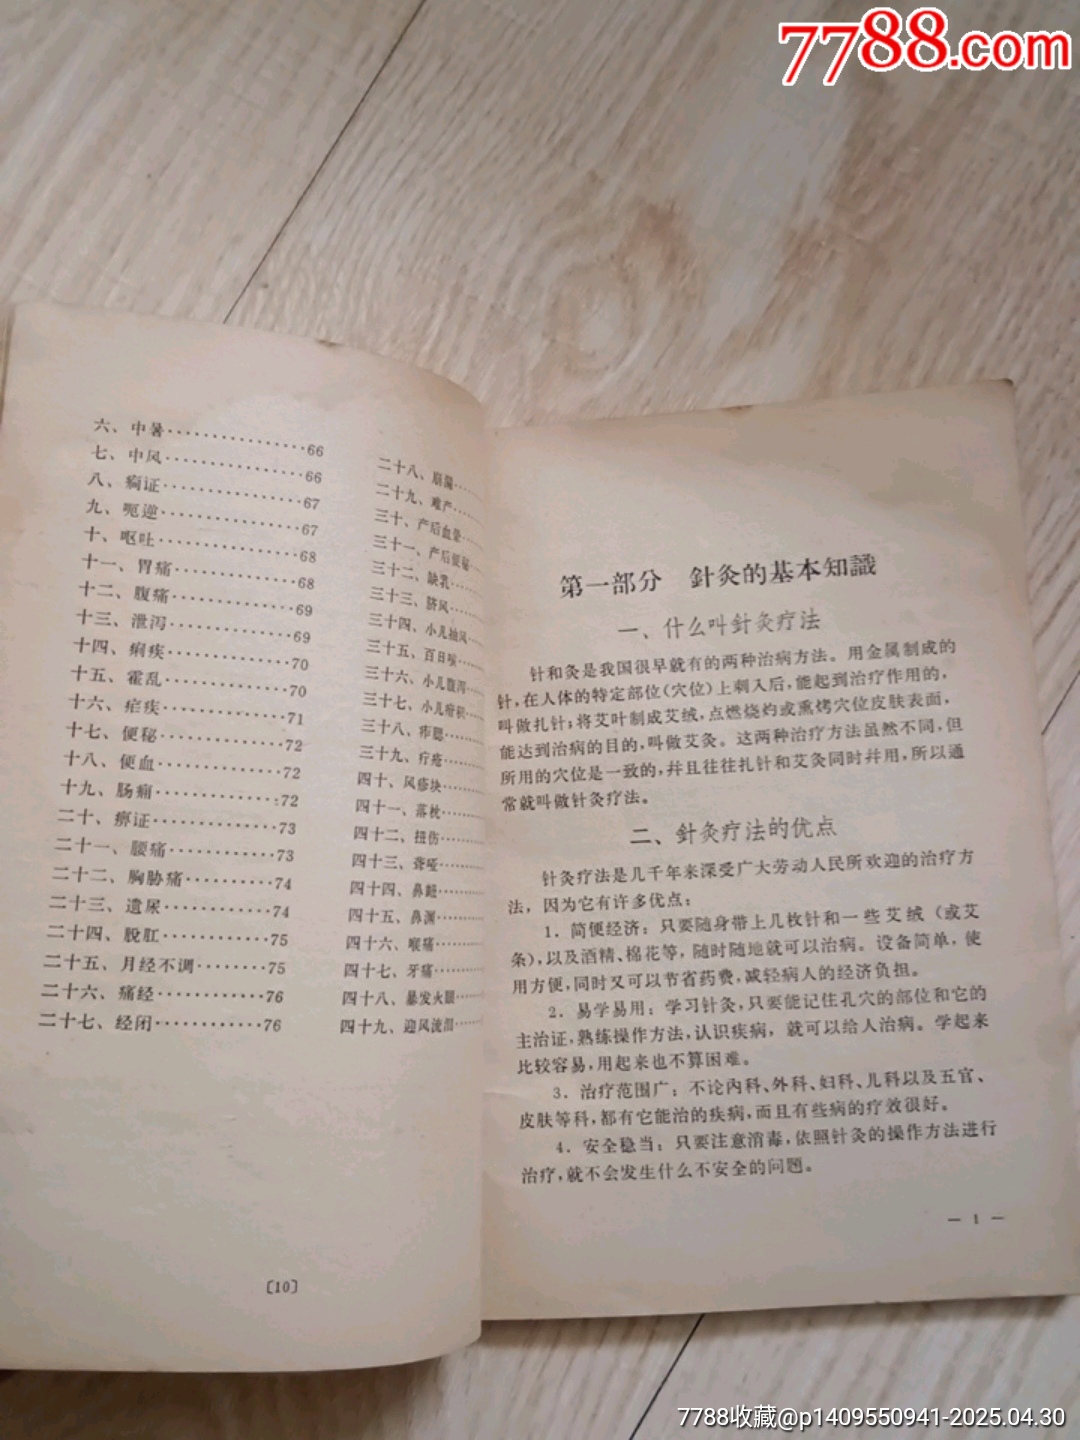 7788.com
六、中暑················66
七、中风················66
八、痫证················67
九、呃逆················67
十、呕吐················68
十一、胃痛··············68
十二、腹痛··············69
十三、泄泻··············69
十四、痢疾··············70
十五、霍乱··············70
十六、疟疾··············71
十七、便秘··············72
十八、便血··············72
十九、肠痈··············72
二十、痹证··············73
二十一、腰痛············73
二十二、胸胁痛··········74
二十三、遗尿············74
二十四、脱肛············75
二十五、月经不调········75
二十六、痛经············76
二十七、经闭············76
二十八、崩漏······
二十九、难产······
三十、产后血晕····
三十一、产后便秘
三十二、缺乳······
三十三、脐风······
三十四、小儿抽风··
三十五、百日咳····
三十六、小儿腹泻··
三十七、小儿疳积··
三十八、痄腮······
三十九、疔疮······
四十、风疹块······
四十一、落枕······
四十二、扭伤······
四十三、聋哑······
四十四、鼻衄······
四十五、鼻渊······
四十六、喉痛······
四十七、牙痛······
四十八、暴发火眼··
四十九、迎风流泪··
〔10〕
第一部分 針灸的基本知識
一、什么叫針灸疗法
针和灸是我国很早就有的两种治病方法。用金属制成的
针，在人体的特定部位（穴位）上刺入后，能起到治疗作用的，
叫做扎针；将艾叶制成艾绒，点燃烧灼或熏烤穴位皮肤表面，
能达到治病的目的，叫做艾灸。这两种治疗方法虽然不同，但
所用的穴位是一致的，并且往往扎针和艾灸同时并用，所以通
常就叫做针灸疗法。
二、針灸疗法的优点
针灸疗法是几千年来深受广大劳动人民所欢迎的治疗方
法，因为它有许多优点：
1．简便经济：只要随身带上几枚针和一些艾绒（或艾
条），以及酒精、棉花等，随时随地就可以治病。设备简单，使
用方便，同时又可以节省药费，减轻病人的经济负担。
2．易学易用：学习针灸，只要能记住孔穴的部位和它的
主治证，熟练操作方法，认识疾病，就可以给人治病。学起来
比较容易，用起来也不算困难。
3．治疗范围广：不论内科、外科、妇科、儿科以及五官、
皮肤等科，都有它能治的疾病，而且有些病的疗效很好。
4．安全稳当：只要注意消毒，依照针灸的操作方法进行
治疗，就不会发生什么不安全的问题。
— 1 —
7788收藏@p1409550941-2025.04.30